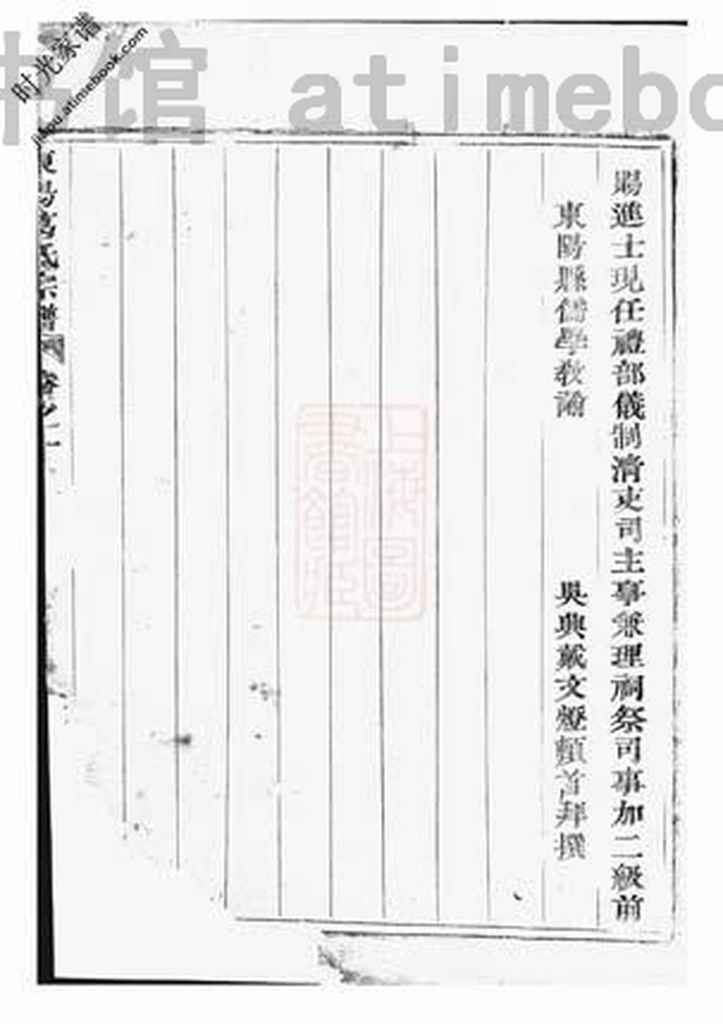 賜進士現任禮部儀制清吏司主事兼理祠祭司事加二級前
東陽縣儒學教諭 吳興戴文燈頓首拜撰
東陽葛氏宗譜 卷之
上海圖書館藏
时光家谱
jiapu.atimebook.com
书馆 atimebo